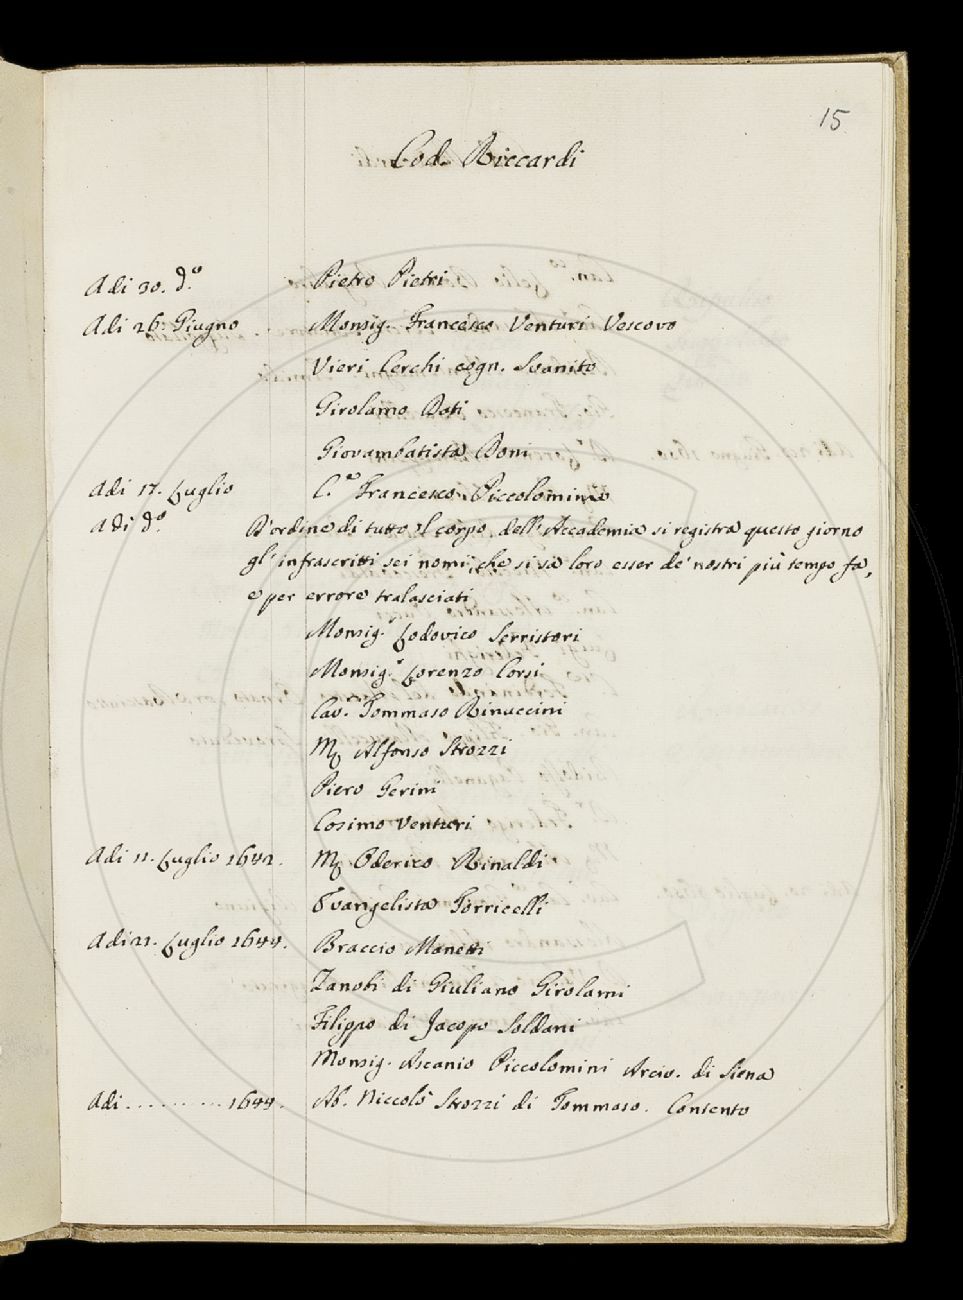 15
Cod. Riccardi
Adi 30. d.º Pietro Pietri
Adi 26. Giugno Monsig. Francesco Venturi Vescovo
Vieri Cerchi cogn. Svanito
Girolamo Dati
Giovambatista Doni
Adi 17. Luglio C.e Francesco Piccolomini
Adi d.º D'ordine di tutto il corpo dell'Accademia si registra questo giorno
gl'infrascritti sei nomi, che si sa loro esser de' nostri più tempo fa,
e per errore tralasciati
Monsig. Lodovico Serristori
Monsig.r Lorenzo Corsi
Cav.re Tommaso Rinuccini
M. Alfonso Strozzi
Piero Gerini
Cosimo Venturi
Adi 11. Luglio 1642. M. Oderico Rinaldi
Evangelista Torricelli
Adi 21. Luglio 1644. Braccio Manetti
Zanobi di Giuliano Girolami
Filippo di Jacopo Soldani
Monsig. Ascanio Piccolomini Arciv. di Siena
Adi .......... 1644. Ab. Niccolò Strozzi di Tommaso. Contento